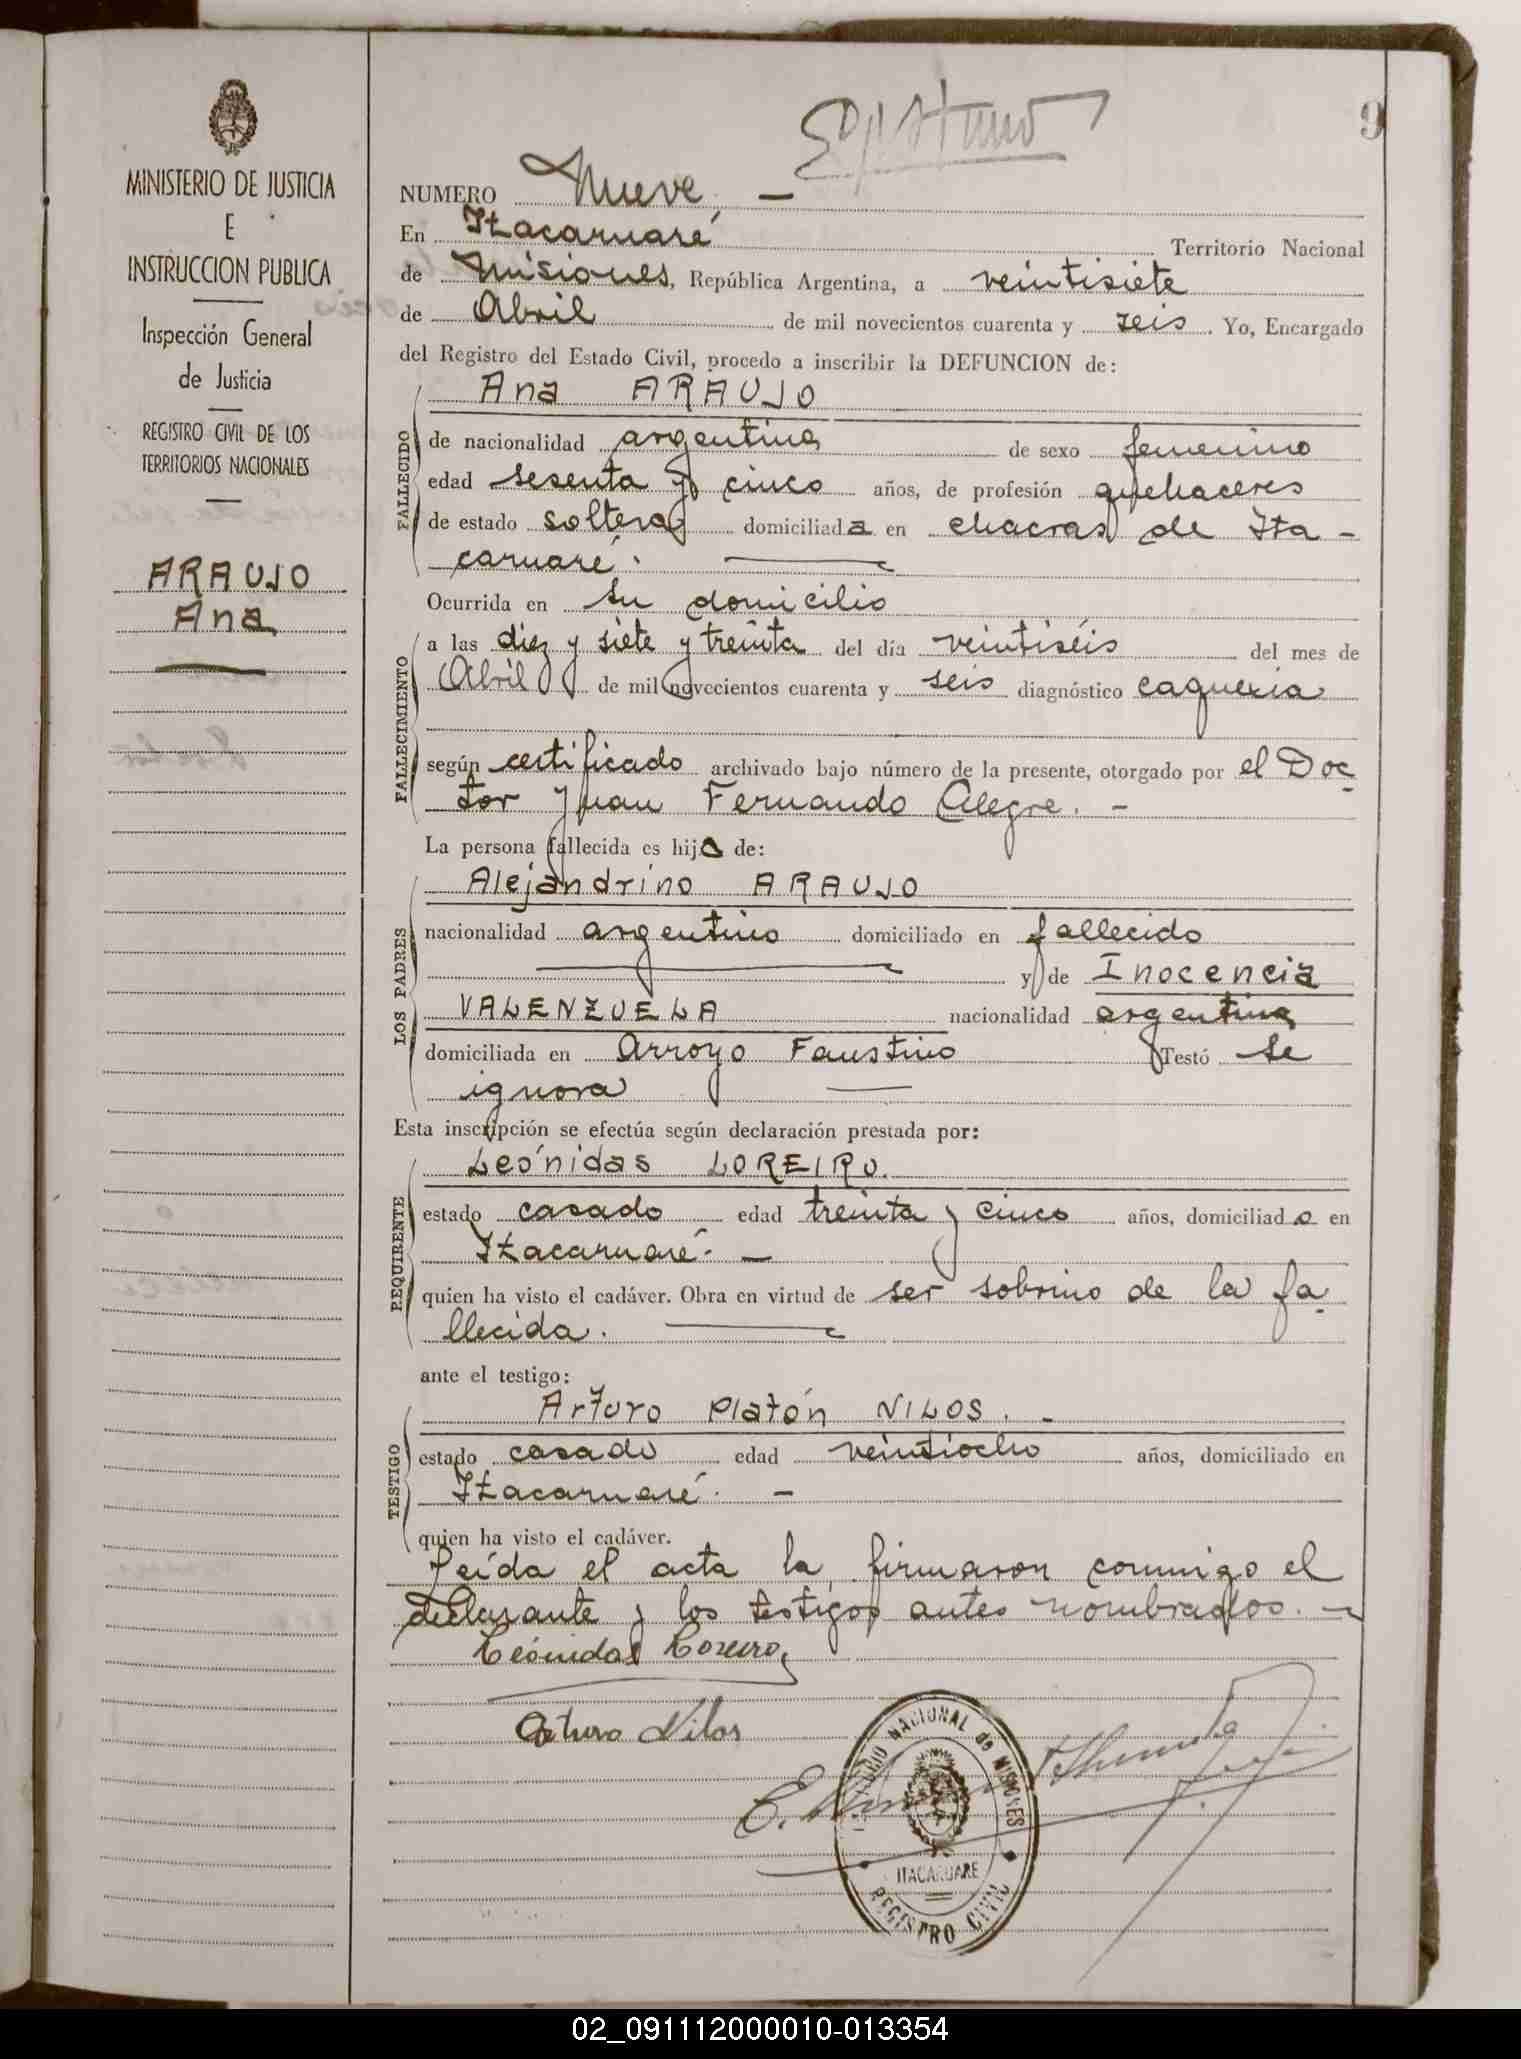 9
MINISTERIO DE JUSTICIA
E
INSTRUCCION PUBLICA
Inspección General
de Justicia
REGISTRO CIVIL DE LOS
TERRITORIOS NACIONALES
ARAUJO
Ana
NUMERO Nueve. —
En Itacaruaré Territorio Nacional
de Misiones, República Argentina, a veintisiete
de Abril de mil novecientos cuarenta y seis. Yo, Encargado
del Registro del Estado Civil, procedo a inscribir la DEFUNCION de:
FALLECIDO
Ana ARAUJO
de nacionalidad argentina de sexo femenino
edad sesenta y cinco años, de profesión quehaceres
de estado soltera domiciliada en chacras de Ita-
caruaré.
Ocurrida en su domicilio
FALLECIMIENTO
a las diez y siete y treinta del día veintiséis del mes de
Abril de mil novecientos cuarenta y seis diagnóstico caquexia
según certificado archivado bajo número de la presente, otorgado por el Doc-
tor Juan Fernando Alegre. -
La persona fallecida es hija de:
LOS PADRES
Alejandrino ARAUJO
nacionalidad argentino domiciliado en fallecido
y de Inocencia
VALENZUELA nacionalidad argentina
domiciliada en Arroyo Faustino Testó se
ignora
Esta inscripción se efectúa según declaración prestada por:
REQUIRENTE
Leónidas LOREIRO.
estado casado edad treinta y cinco años, domiciliado en
Itacaruaré. —
quien ha visto el cadáver. Obra en virtud de ser sobrino de la fa-
llecida.
ante el testigo:
TESTIGO
Arturo Platón NILOS. -
estado casado edad veintiocho años, domiciliado en
Itacaruaré. —
quien ha visto el cadáver.
Leída el acta la firmaron conmigo el
declarante y los testigos antes nombrados. —
Leónidas Loreiro
Arturo Nilos
TERRITORIO NACIONAL de MISIONES
ITACARUARE
REGISTRO CIVIL
02_091112000010-013354